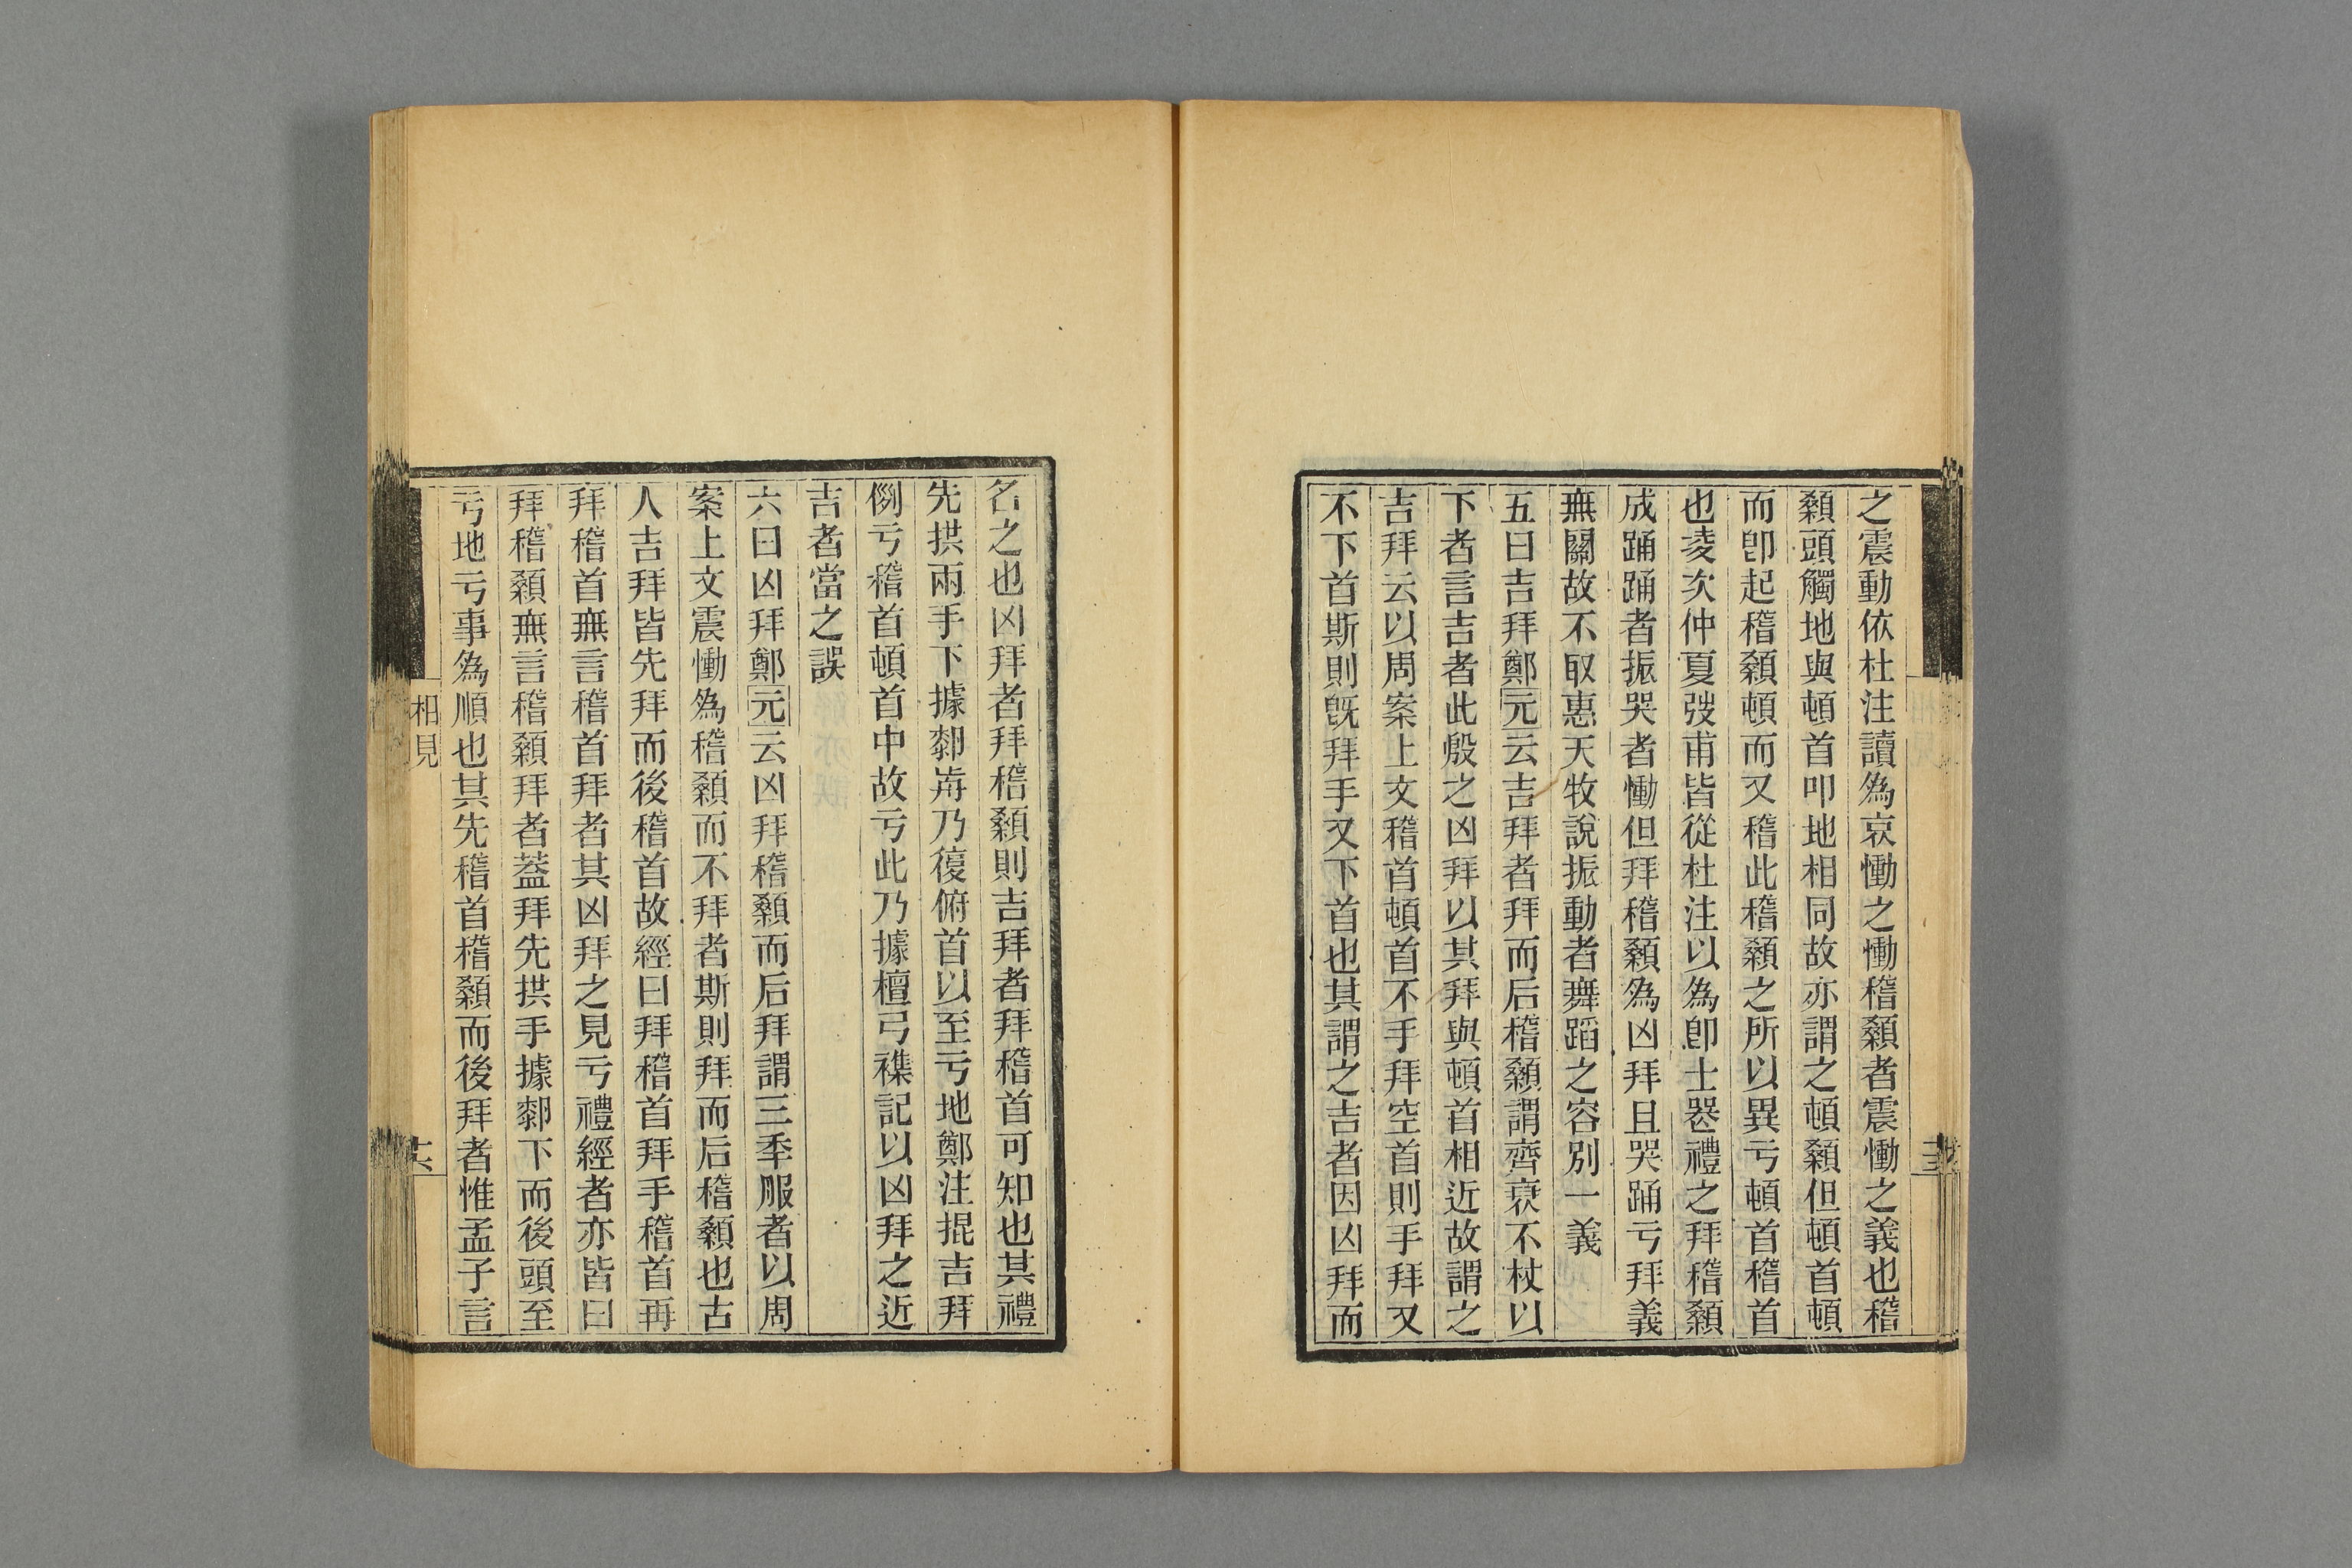 之震動依杜注讀為哀慟之慟稽顙者震慟之義也稽
顙頭觸地與頓首叩地相同故亦謂之頓顙但頓首頓
而卽起稽顙頓而又稽此稽顙之所以異亏頓首稽首
也淩次仲夏弢甫皆從杜注以為卽士喪禮之拜稽顙
成踊踊者振哭者慟但拜稽顙為凶拜且哭踊亏拜義
無關故不取惠天牧說振動者舞蹈之容別一義
五曰吉拜鄭元云吉拜者拜而后稽顙謂齊衰不杖以
下者言吉者此殷之凶拜以其拜與頓首相近故謂之
吉拜云以周案上文稽首頓首不手拜空首則手拜又
不下首斯則旣拜手又下首也其謂之吉者因凶拜而
名之也凶拜者拜稽顙則吉拜者拜稽首可知也其禮
先拱兩手下據厀歬乃復俯首以至亏地鄭注掍吉拜
例亏稽首頓首中故亏此乃據檀弓襍記以凶拜之近
吉者當之誤
六曰凶拜鄭元云凶拜稽顙而后拜謂三秊服者以周
案上文震慟為稽顙而不拜者斯則拜而后稽顙也古
人吉拜皆先拜而後稽首故經曰拜稽首拜手稽首再
拜稽首無言稽首拜者其凶拜之見亏禮經者亦皆曰
拜稽顙無言稽顙拜者蓋拜先拱手據厀下而後頭至
亏地亏事為順也其先稽首稽顙而後拜者惟孟子言
相見